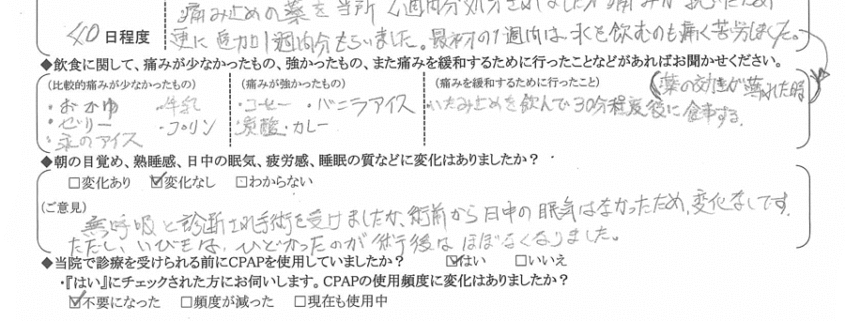 痛み止めの薬を当所2週間分処分されましたが痛みが続いたため
10日程度 更に追加1週間分もらいました。最初の1週間は、水を飲むのも痛く苦労しました。
◆飲食に関して、痛みが少なかったもの、強かったもの、また痛みを緩和するために行ったことなどがあればお聞かせください。
(比較的痛みが少なかったもの) (痛みが強かったもの) (痛みを緩和するために行ったこと) (薬の効き目が薄れた時)
・おかゆ ・牛乳 ・コーヒー ・バニラアイス いたみ止めを飲んで30分程度後に食事する。
・ゼリー ・プリン ・炭酸 ・カレー
・氷のアイス
◆朝の目覚め、熟睡感、日中の眠気、疲労感、睡眠の質などに変化はありましたか？
□変化あり ☑変化なし □わからない
(ご意見)
無呼吸と診断され手術を受けましたが、術前から日中の眠気はなかったため、変化なしです。
ただし、いびきは、ひどかったのが術後はほぼなくなりました。
◆当院で診療を受けられる前にCPAPを使用していましたか？ ☑はい □いいえ
・『はい』にチェックされた方にお伺いします。CPAPの使用頻度に変化はありましたか？
☑不要になった □頻度が減った □現在も使用中